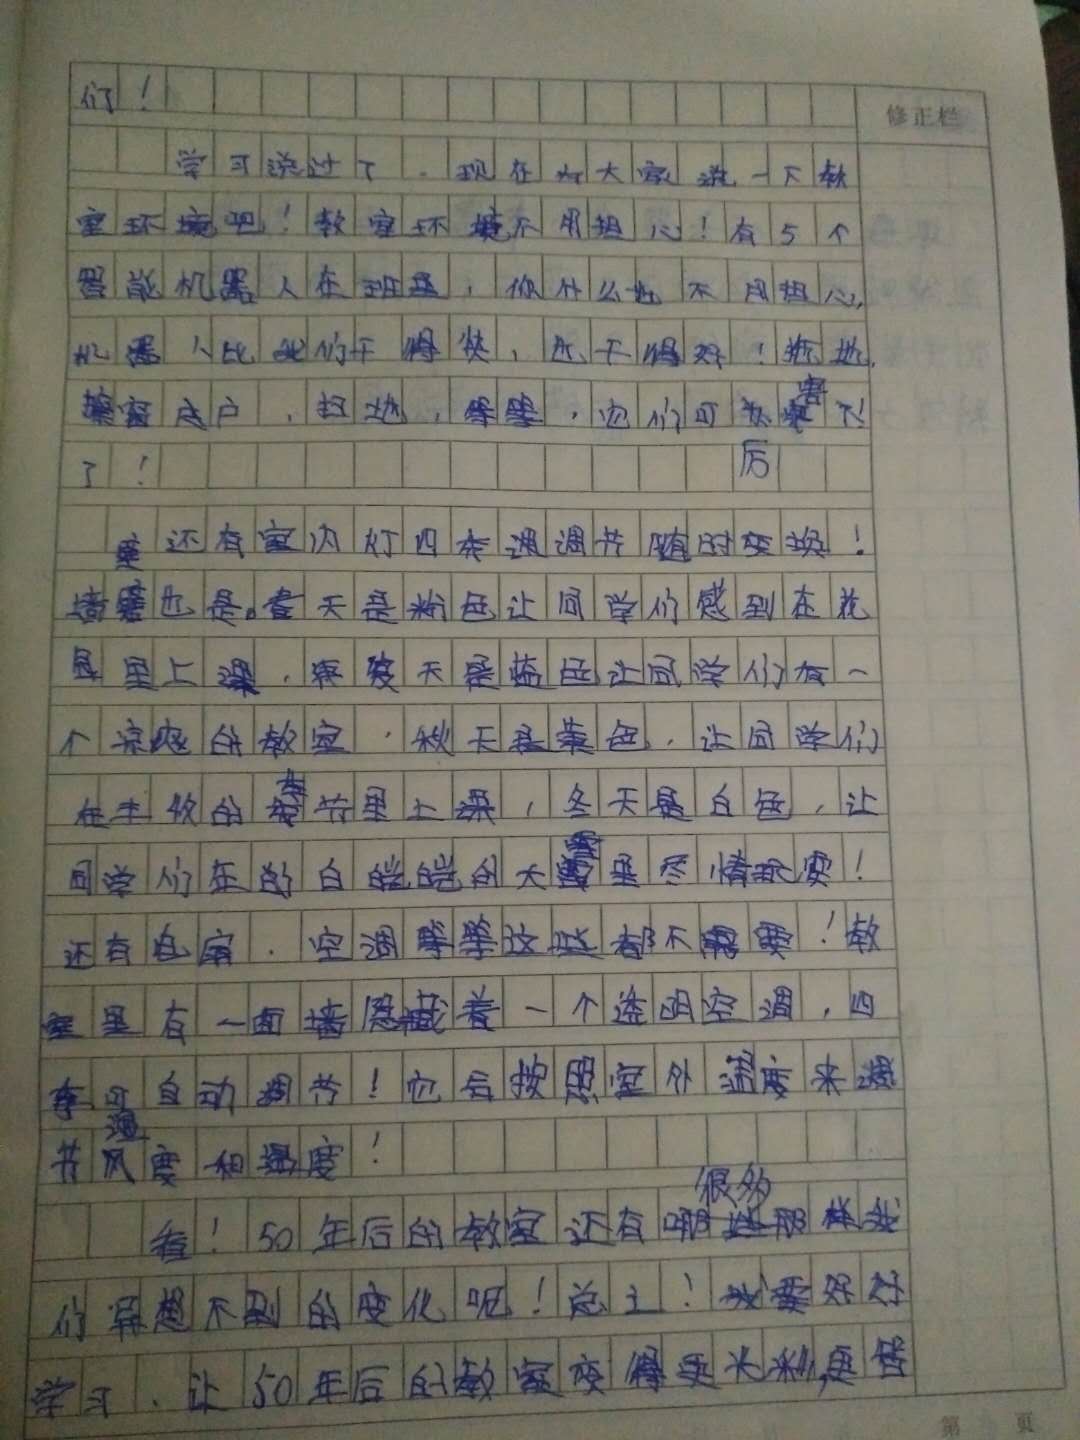 们！
修正栏
学习说过了．现在为大家说一下教
室环境吧！教室环境不用担心！有5个
智能机器人在班里，你什么也不用担心，
机器人比我们干得快，还干得好！拖地，
擦窗户，扫地，等等，它们可为害不
后
了！
还有室内灯四季调调节随时变换！
墙壁也是。春天是粉色让同学们感到在花
里上课．夏天是蓝色让同学们有一
个凉爽的教室．秋天是黄色．让同学们
在丰收的季节里上课，冬天是白色，让
同学们在的白皑皑的大雪里尽情玩耍！
还有电扇．空调等等这些都不需要！教
室里有一面墙隐藏着一个透明空调，四
季可自动调节！它后按照室外温度来调
节风度和温度！
很多
看！50年后的教室还有哪些那样我
们异想不到的变化呢！总之！我要好好
学习．让50年后的教室变得更大利，更智
第 页